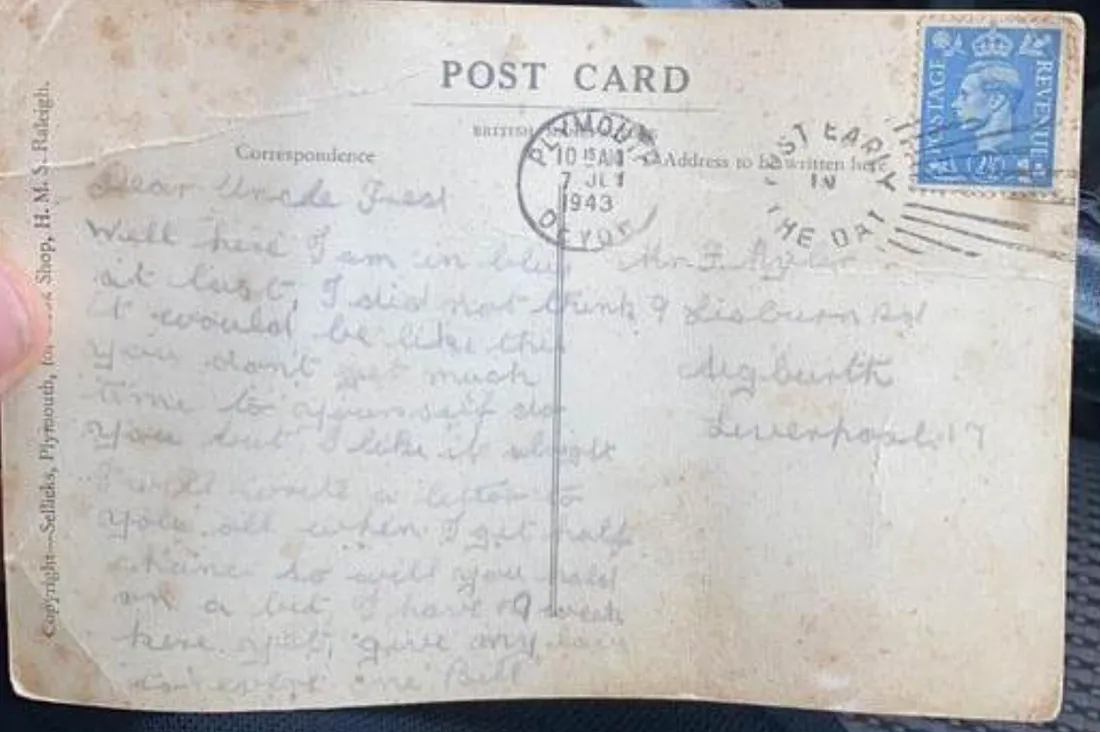 POST CARD
Correspondence
Address to be written here
PLYMOUTH
10 15 AM
7 JLY
1943
DEVON
POST EARLY
IN
THE DAY
POSTAGE
REVENUE
2½
Dear Uncle Fred
Well here I am in blue
at last, I did not think
it would be like this
you don't get much
time to yourself do
you but I like it alright
I will write a letter to
you all when I get half
chance so will you hold
on a bit, I have 9 weeks
here yet, give my love
to every one Bill
Mr F.
9 Lisburn Rd
Aigburth
Liverpool 17
Copyright—Sellicks, Plymouth, for Shop, H. M. S. Raleigh.